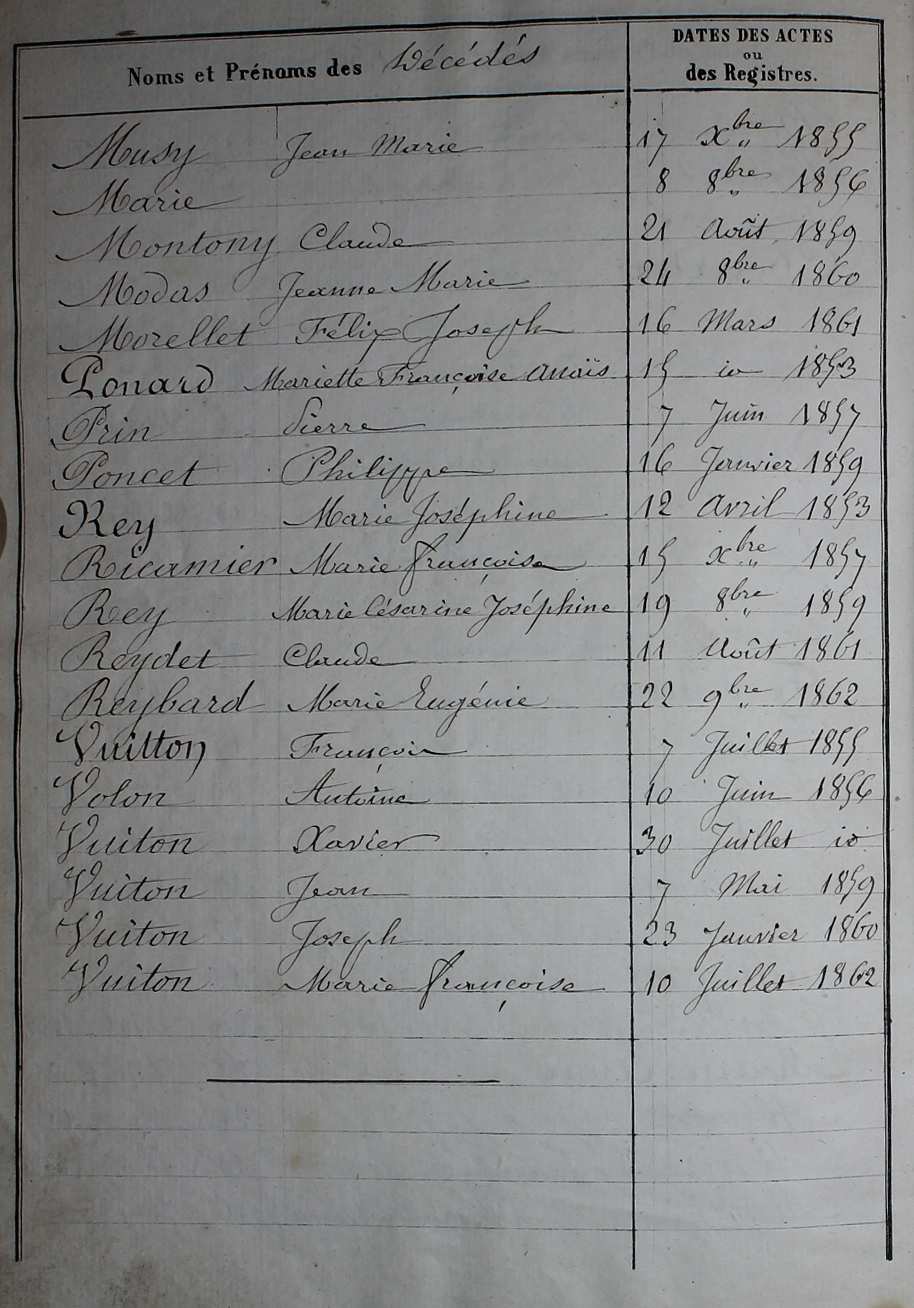 Noms et Prénoms des Décédés
DATES DES ACTES
ou
des Registres.
Musy Jean Marie 17 Xbre „ 1855
Marie 8 8bre „ 1856
Montony Claude 21 Août 1859
Modas Jeanne Marie 24 8bre „ 1860
Morellet Félix Joseph 16 Mars 1861
Ponard Mariette Françoise Anaïs 15 io 1853
Prin Pierre 7 Juin 1857
Poncet Philippe 16 Janvier 1859
Rey Marie Joséphine 12 Avril 1853
Ricamier Marie françoise 15 Xbre „ 1857
Rey Marie Césarine Joséphine 19 8bre „ 1859
Reydet Claude 11 Août 1861
Reybard Marie Eugénie 22 9bre „ 1862
Vuitton François 7 Juillet 1855
Volon Antoine 10 Juin 1856
Vuiton Xavier 30 Juillet io
Vuiton Jean 7 Mai 1859
Vuiton Joseph 23 Janvier 1860
Vuiton Marie françoise 10 Juillet 1862